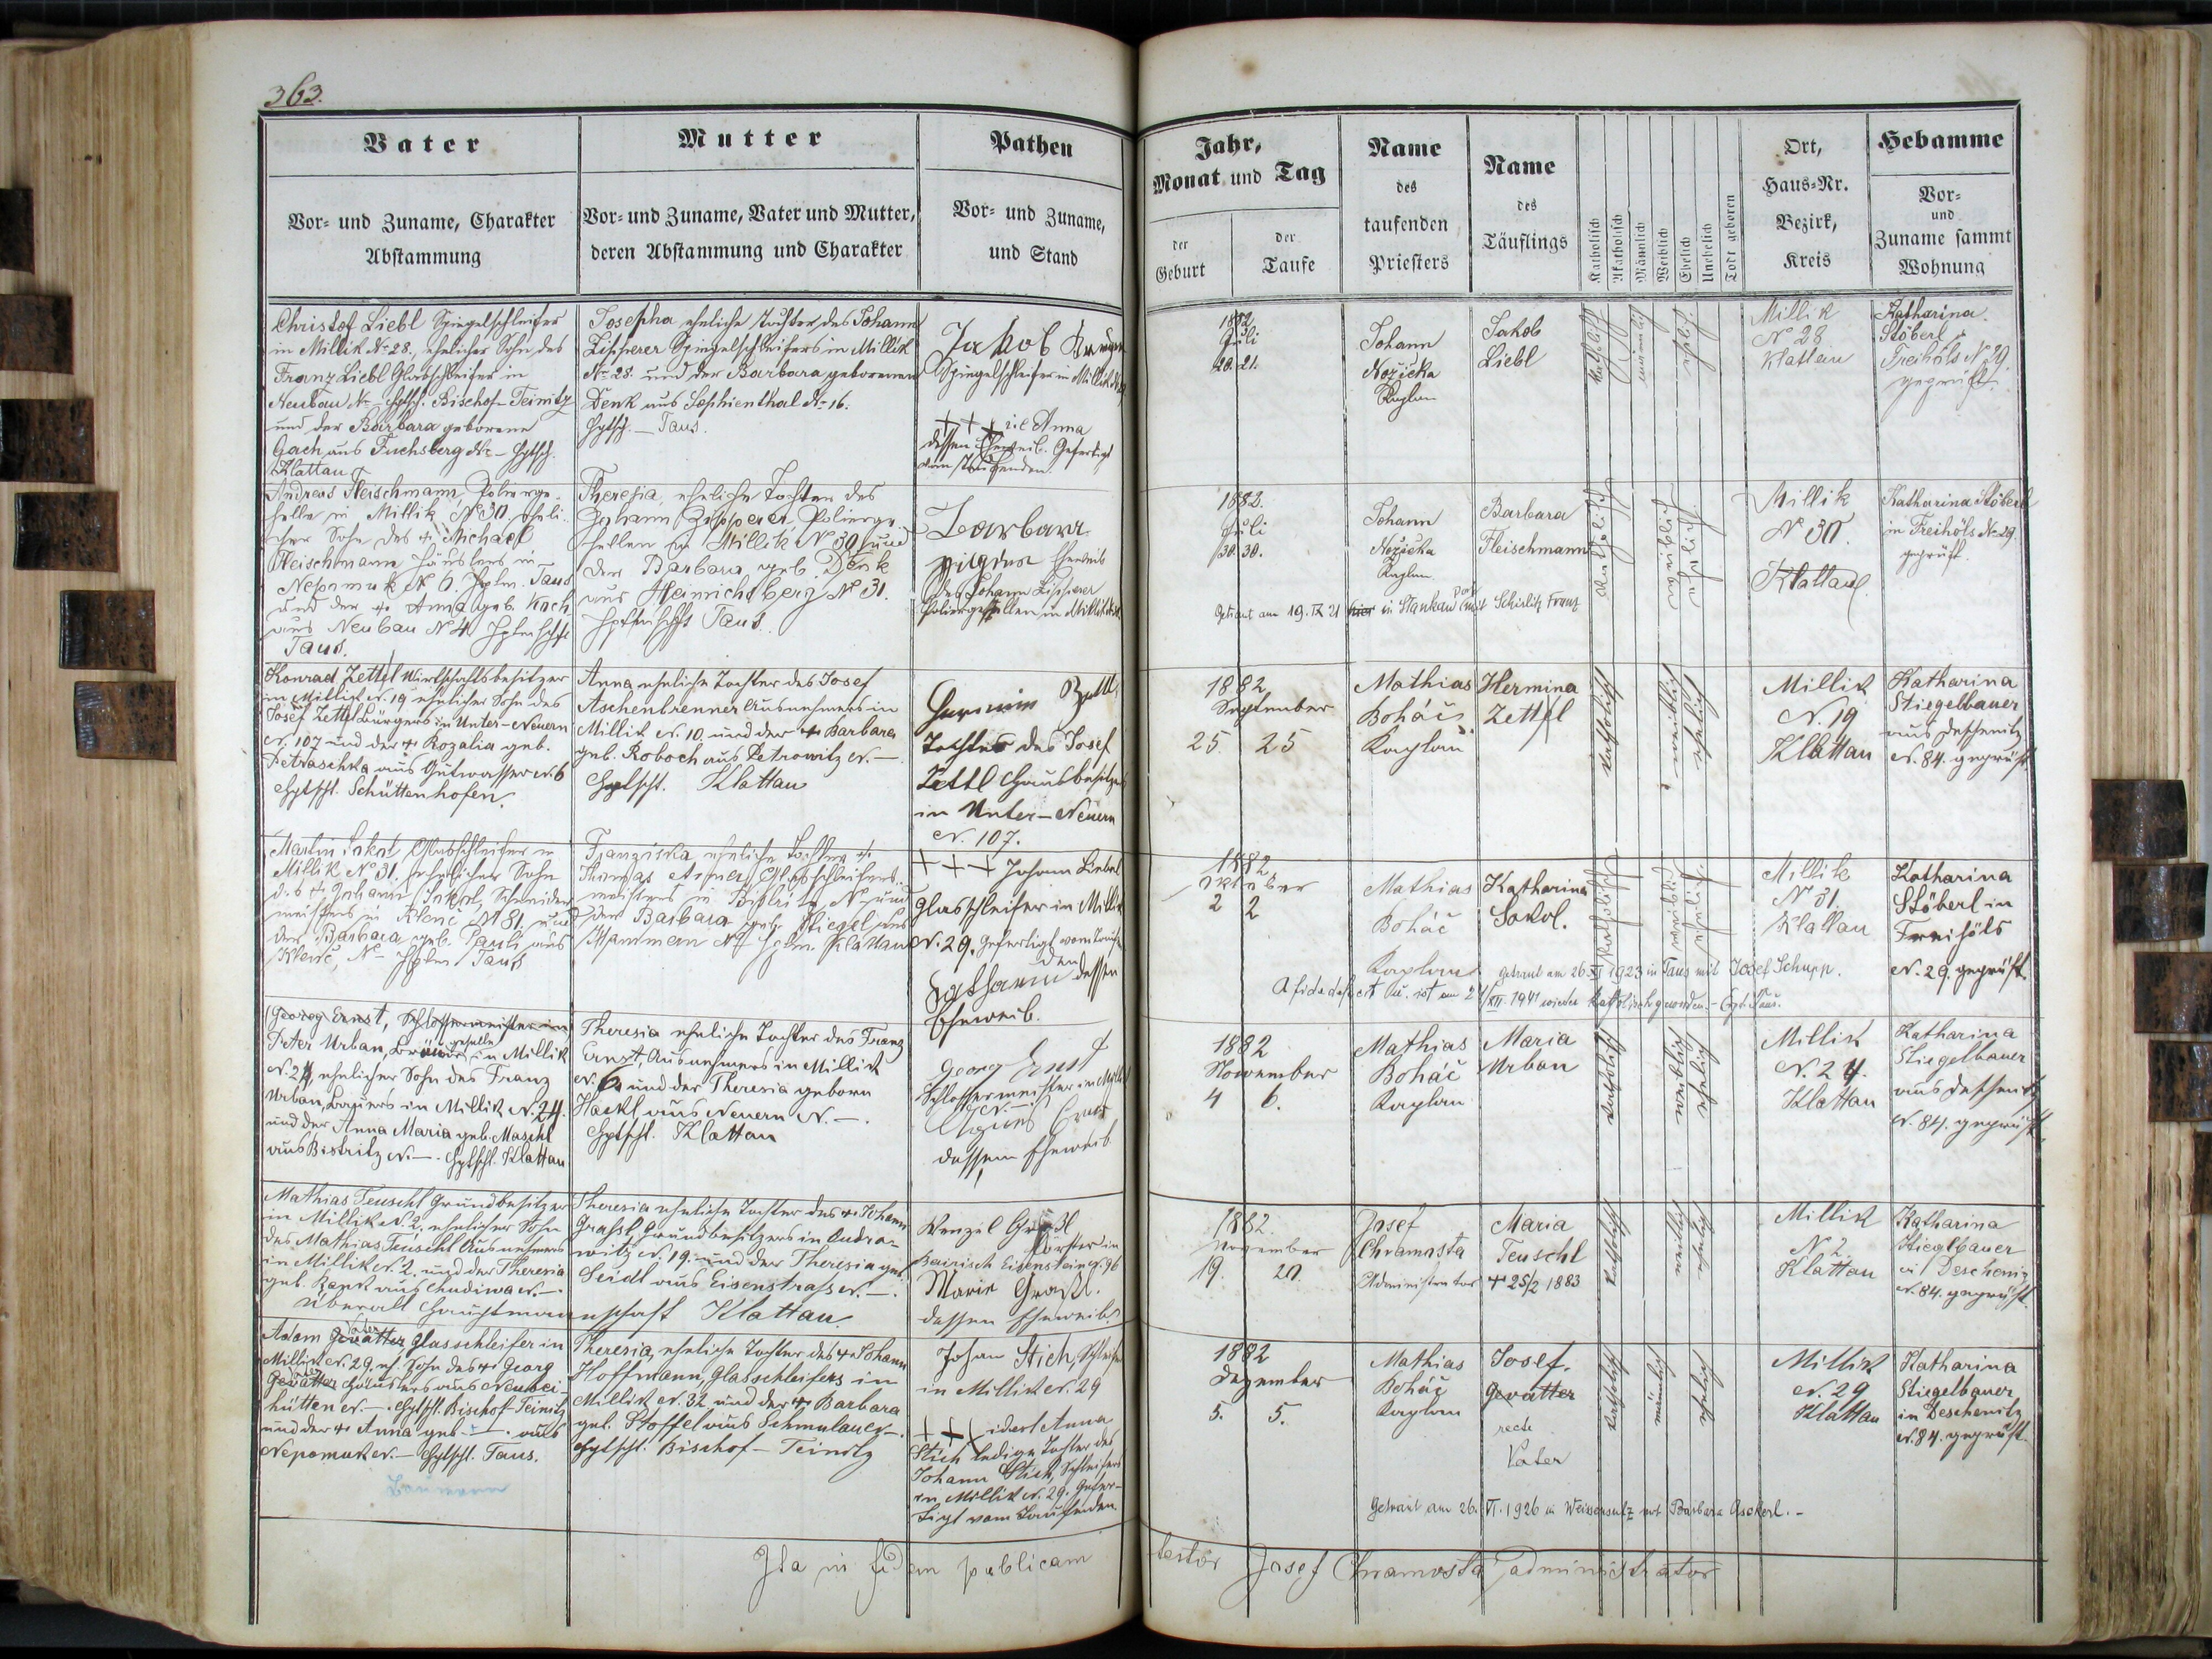 363.
Vater
Mutter
Pathen
Vor- und Zuname, Charakter
Abstammung
Vor- und Zuname, Vater und Mutter,
deren Abstammung und Charakter
Vor- und Zuname,
und Stand
Christof Liebl Spiegelschleifer
in Millik No 28., ehelicher Sohn des
Franz Liebl Glasschleifer in
Neubau No — Hptsch. Bischof-Teinitz
und der Barbara geborene
Gach aus Fuchsberg No — Hptsch.
Klattau
Josepha eheliche Tochter des Johann
Zipperer Spiegelschleifers in Millik
No 28. und der Barbara geborenen
Denk aus Sophienthal No 16.
Hptsch. — Taus.
Jakob
Spiegelschleifer in Millik
+++ Anna
dessen Eheweib. Gefertigt
vom Taufenden
Andreas Fleischmann, Polierge-
selle in Millik No 30, eheli-
cher Sohn des + Michael
Fleischmann Häuslers in
Nepomuk No 6. Hptm. Taus
und der + Anna geb. Koch
aus Neubau No 4 Hptmschft
Taus.
Theresia, eheliche Tochter des
Johann Zipperer, Polierge-
sellen in Millik No 30 und
der Barbara geb. Denk
aus Heinrichsberg No 31.
Hptmschft Taus.
Barbara
Eheweib
des Johann Zipperer
Poliergesellen in Millik
Konrad Zettl Wirtschaftsbesitzer
in Millik N. 19 ehelicher Sohn des
Josef Zettl Bürgers in Unter-Neuern
N. 107 und der + Rozalia geb.
Petraschka aus Gutwasser N. 6
Hptschl. Schüttenhofen.
Anna eheliche Tochter des Josef
Aschenbrenner Ausnehmers in
Millik N. 10. und der + Barbara
geb. Roboch aus Petrowitz N. —
Hptschl. Klattau
Hermine Zettl
Tochter des Josef
Zettl Hausbesitzers
in Unter-Neuern
N. 107.
Martin Sokol, Glasschleifer in
Millik No 31, ehelicher Sohn
des + Johann Sokol, Schneider-
meisters in Klenč No 81. und
der Barbara geb. Pauli aus
Klenč, No — Hptm Taus
Franziska eheliche Tochter +
Thomas Asmer, Glasschleifer-
meisters in Bistritz No und
der Barbara geb. Stiegel aus
Hammern No 7 Hptm. Klattau
+++ Johann Liebl
Glasschleifer in Millik
N. 29. gefertigt vom Taufen-
den
Katharina dessen
Eheweib.
Georg Ernst, Schlossermeister in
Peter Urban, Bräugeselle in Millik
N. 24, ehelicher Sohn des Franz
Urban, Bauers in Millik N. 24.
und der Anna Maria geb. Maschl
aus Bistritz N. — Hptschl. Klattau
Theresia eheliche Tochter des Franz
Ernst, Ausnehmers in Millik
N. 6. und der Theresia geborn
Hackl aus Neuern N. —.
Hptschl. Klattau
Georg Ernst
Schlossermeister in Millik
N. —
Agnes Ernst
dessen Eheweib
Mathias Teuschl Grundbesitzer
in Millik N. 2. ehelicher Sohn
des Mathias Teuschl Ausnehmers
in Millik N. 2. und der Theresia
geb. Rank aus Chudiwa N. —.
Theresia eheliche Tochter des + Johann
Graßl, Grundbesitzers in Andra-
witz N. 19. und der Theresia geb.
Seidl aus Eisenstraß N. —.
überall Hauptmannschaft Klattau
Wenzel Graßl
Förster in
Bairisch Eisenstein N. 96
Marie Graßl.
dessen Eheweib.
Adam Gevatter Vater Glasschleifer in
Millik N. 29. eh. Sohn des + Georg
Gevatter Vater Häuslers aus Neubei-
hütten N. —. Hptschl. Bischof Teinitz
und der + Anna geb. — . aus
Nepomuk N. — Hptschl. Taus.
Theresia, eheliche Tochter des + Johann
Hoffmann, Glasschleifers in
Millik N. 32 und der + Barbara
geb. Stoffel aus Schmalau N. —.
Hptschl. Bischof-Teinitz
Johan Stich, Schleifer
in Millik N. 29
+++ id est Anna
Stich ledige Tochter des
Johann Stich, Schleifers
in Millik N. 29. Gefer-
tigt vom Taufenden.
Ita in fidem publicam
Jahr,
Monat und Tag
der
Geburt
der
Taufe
Name
des
taufenden
Priesters
Name
des
Täuflings
Katholisch
Akatholisch
Männlich
Weiblich
Ehelich
Unehelich
Todt geboren
Ort,
Haus-Nr.
Bezirk,
Kreis
Hebamme
Vor-
und
Zuname sammt
Wohnung
1882
Juli
20. 21.
Johann
Nožička
Kaplan
Jakob
Liebl
katholisch
männlich
ehelich
Millik
No 28
Klattau
Katharina
Stöberl
Freihöls No 29.
geprüft.
1882.
Juli
30. 30.
Johann
Nožička
Kaplan
Barbara
Fleischmann
katholisch
weiblich
ehelich
Millik
No 30.
Klattau
Katharina Stöberl
in Freihöls No 29.
geprüft.
Getraut am 19. IX 21 hier in Stankau mit Schislik Franz
1882
September
25. 25
Mathias
Boháč
Kaplan
Hermina
Zettl
katholisch
weiblich
ehelich
Millik
N. 19
Klattau
Katharina
Stiegelbauer
aus Deschenitz
N. 84. geprüft
1882
Oktober
2 2
Mathias
Boháč
Kaplan
Katharina
Sokol.
katholisch
weiblich
ehelich
Millik
No 31.
Klattau
Katharina
Stöberl in
Freihöls
N. 29. geprüft.
getraut am 26. XI 1923 in Taus mit Josef Schupp.
A fide defecit u. ist am 24/XII. 1941 wieder katholisch geworden. —
1882
November
4 6.
Mathias
Boháč
Kaplan
Maria
Urban
katholisch
weiblich
ehelich
Millik
N. 24.
Klattau
Katharina
Stiegelbauer
aus Deschenitz
N. 84. geprüft.
1882.
November
19. 20.
Josef
Chramosta
Administrator
Maria
Teuschl
+ 25/2 1883
katholisch
weiblich
ehelich
Millik
N 2
Klattau
Katharina
Stieglbauer
in Deschenitz
N. 84. geprüft.
1882
Dezember
5. 5.
Mathias
Boháč
Kaplan
Josef.
Gevatter
recte
Vater
katholisch
männlich
ehelich
Millik
N. 29
Klattau
Katharina
Stiegelbauer
in Deschenitz
N. 84. geprüft
Getraut am 26. VI. 1926 in Weissensulz mit Barbara Asckerl. —
testor Josef Chramosta administrator